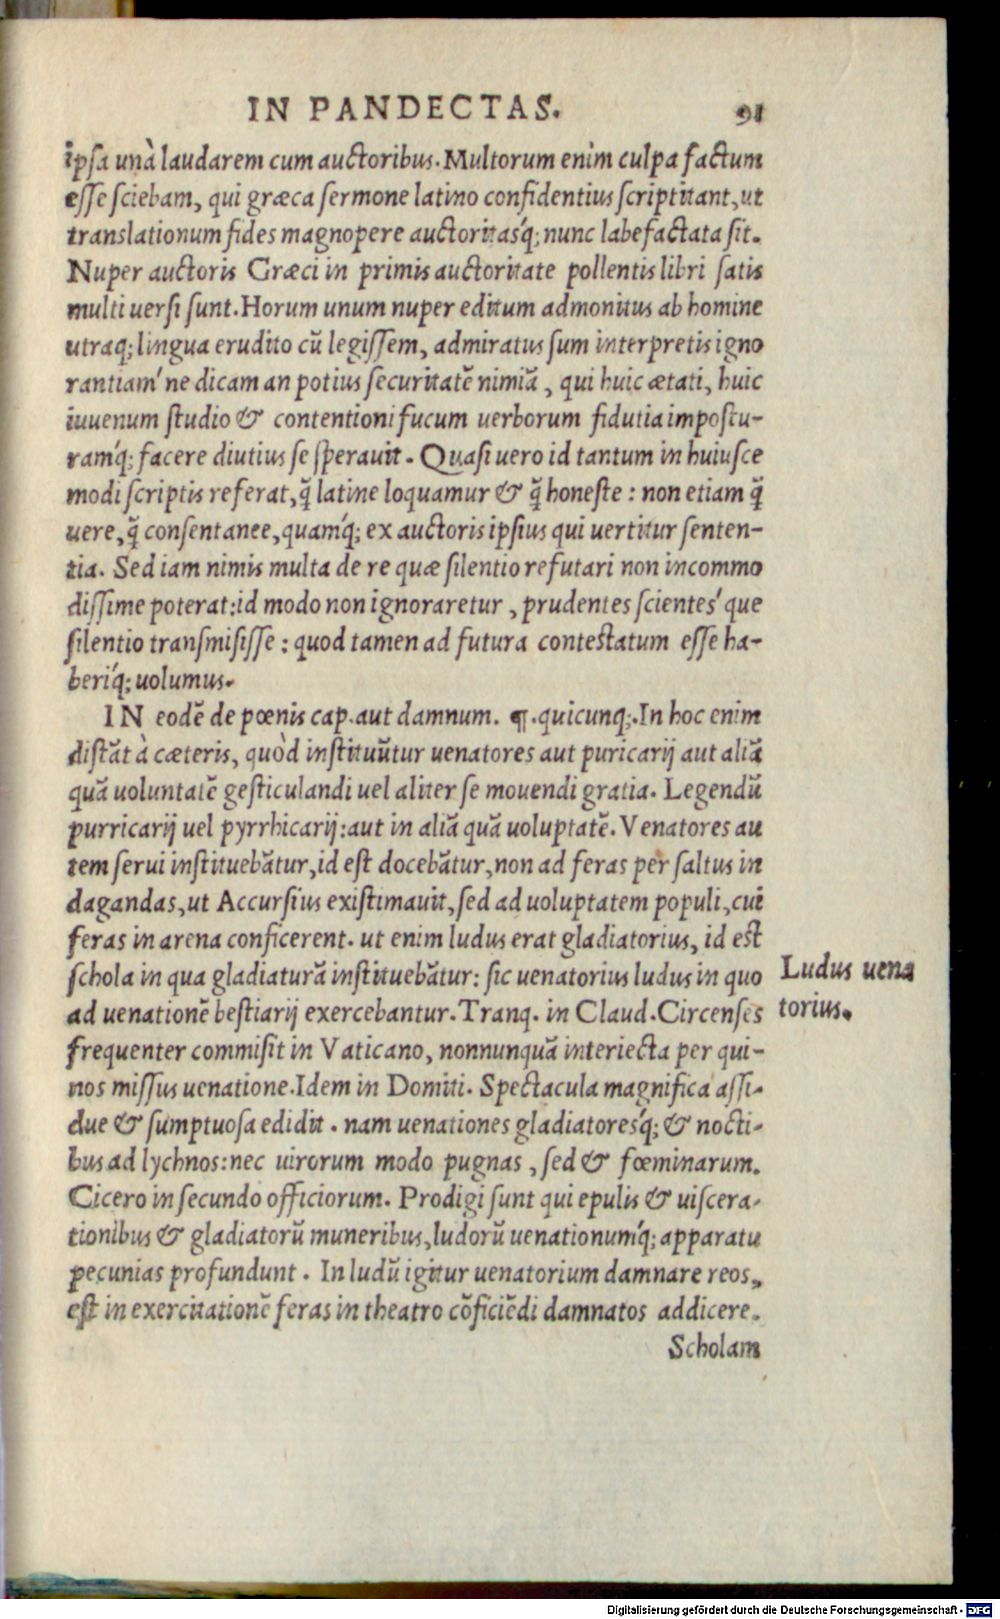 IN PANDECTAS. 91
ipsa unà laudarem cum auctoribus. Multorum enim culpa factum
esse sciebam, qui græca sermone latino confidentius scriptitant, ut
translationum fides magnopere auctoritasq́; nunc labefactata sit.
Nuper auctoris Græci in primis auctoritate pollentis libri satis
multi uersi sunt. Horum unum nuper editum admonitus ab homine
utraq; lingua erudito cū legissem, admiratus sum interpretis igno
rantiam'ne dicam an potius securitatē nimiā, qui huic ætati, huic
iuuenum studio & contentioni fucum uerborum fidutia impostu-
ramq́; facere diutius se sperauit. Quasi uero id tantum in huiusce
modi scriptis referat, q̃ latine loquamur & q̃ honeste: non etiam q̃
uere, q̃ consentanee, quamq́; ex auctoris ipsius qui uertitur senten-
tia. Sed iam nimis multa de re quæ silentio refutari non incommo
dissime poterat: id modo non ignoraretur, prudentes scientes'que
silentio transmisisse: quod tamen ad futura contestatum esse ha-
beriq́; uolumus.
IN eodē de pœnis cap. aut damnum. ¶. quicunq;. In hoc enim
distāt à cæteris, quòd instituūtur uenatores aut puricarij aut aliā
quā uoluntatē gesticulandi uel aliter se mouendi gratia. Legendū
purricarij uel pyrrhicarij: aut in aliā quā uoluptatē. Venatores au
tem serui instituebātur, id est docebātur, non ad feras per saltus in
dagandas, ut Accursius existimauit, sed ad uoluptatem populi, cui
feras in arena conficerent. ut enim ludus erat gladiatorius, id est
schola in qua gladiaturā instituebātur: sic uenatorius ludus in quo
ad uenationē bestiarij exercebantur. Tranq. in Claud. Circenses
frequenter commisit in Vaticano, nonnunquā interiecta per qui-
nos missus uenatione. Idem in Domiti. Spectacula magnifica assi-
due & sumptuosa edidit. nam uenationes gladiatoresq́; & nocti-
bus ad lychnos: nec uirorum modo pugnas, sed & fœminarum.
Cicero in secundo officiorum. Prodigi sunt qui epulis & uiscera-
tionibus & gladiatorū muneribus, ludorū uenationumq́; apparatu
pecunias profundunt. In ludū igitur uenatorium damnare reos,
est in exercitationē feras in theatro cōficiēdi damnatos addicere.
Scholam
Ludus uena
torius.
Digitalisierung gefördert durch die Deutsche Forschungsgemeinschaft - DFG